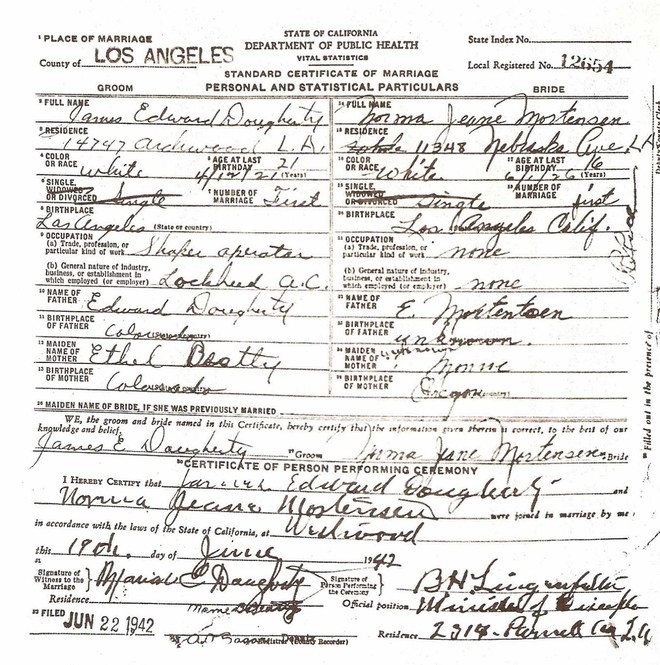 STATE OF CALIFORNIA
DEPARTMENT OF PUBLIC HEALTH
VITAL STATISTICS
STANDARD CERTIFICATE OF MARRIAGE
PERSONAL AND STATISTICAL PARTICULARS
1 PLACE OF MARRIAGE
County of LOS ANGELES
State Index No.
Local Registered No. 12654
GROOM BRIDE
FULL NAME James Edward Dougherty FULL NAME Norma Jeane Mortensen
RESIDENCE 14747 Archwood L.A. RESIDENCE 11348 Nebraska Ave L.A
COLOR OR RACE White AGE AT LAST BIRTHDAY 4/12/21 21 (Years) COLOR OR RACE White AGE AT LAST BIRTHDAY 6/1/26 16 (Years)
SINGLE, WIDOWED OR DIVORCED Single NUMBER OF MARRIAGE First SINGLE, WIDOWED OR DIVORCED Single NUMBER OF MARRIAGE first
BIRTHPLACE Los Angeles (State or country) BIRTHPLACE Los Angeles Calif.
OCCUPATION OCCUPATION
(a) Trade, profession, or particular kind of work Shaper operator (a) Trade, profession, or particular kind of work none
(b) General nature of industry, business, or establishment in which employed (or employer) Lockheed A.C. (b) General nature of industry, business, or establishment in which employed (or employer) none
NAME OF FATHER Edward Dougherty NAME OF FATHER E. Mortensen
BIRTHPLACE OF FATHER Colorado BIRTHPLACE OF FATHER unknown
MAIDEN NAME OF MOTHER Ethel MAIDEN NAME OF MOTHER Monroe
BIRTHPLACE OF MOTHER Colorado BIRTHPLACE OF MOTHER Oregon
MAIDEN NAME OF BRIDE, IF SHE WAS PREVIOUSLY MARRIED
WE, the groom and bride named in this Certificate, hereby certify that the information given therein is correct, to the best of our
knowledge and belief.
James E. Dougherty Groom Norma Jeane Mortensen Bride
CERTIFICATE OF PERSON PERFORMING CEREMONY
I HEREBY CERTIFY that James Edward Dougherty and
Norma Jeane Mortensen were joined in marriage by me
in accordance with the laws of the State of California, at Westwood
this 19th. day of June 1942
Signature of Witness to the Marriage Marion E Dougherty Signature of Person Performing the Ceremony B H Lingenfelter
Residence Official position Minister
FILED JUN 22 1942 Residence 2314
Registrar (County Recorder)
Filled out in the presence of